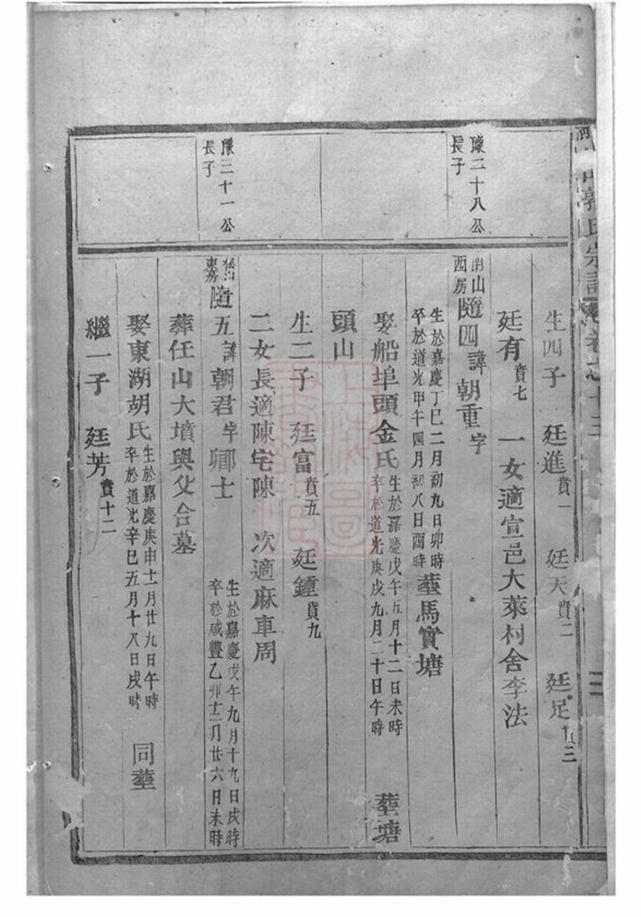 郭氏宗譜 卷之十三
生四子 廷進賁一 廷天賁二 廷足賁三
廷有賁七 一女適宣邑大萊村舍李法
隊二十八公
長子
南山
西房
隨四諱朝重字
生於嘉慶丁巳二月初九日卯時
卒於道光甲午四月初八日酉時
葬馬實塘
娶船埠頭金氏
生於嘉慶戊午五月十二日未時
卒於道光庚戌九月二十日午時
葬塘
頭山
生二子 廷富賁五 廷鍾賁九
二女長適陳宅陳 次適麻車周
隊三十一公
長子
隨五諱朝君字卿士
生於嘉慶戊午九月十九日戌時
卒於咸豐乙卯十二月廿六日未時
葬任山大墳與父合墓
娶東湖胡氏
生於嘉慶庚申十一月廿九日午時
卒於道光辛巳五月十八日戌時
同塟
繼一子 廷芳賁十二